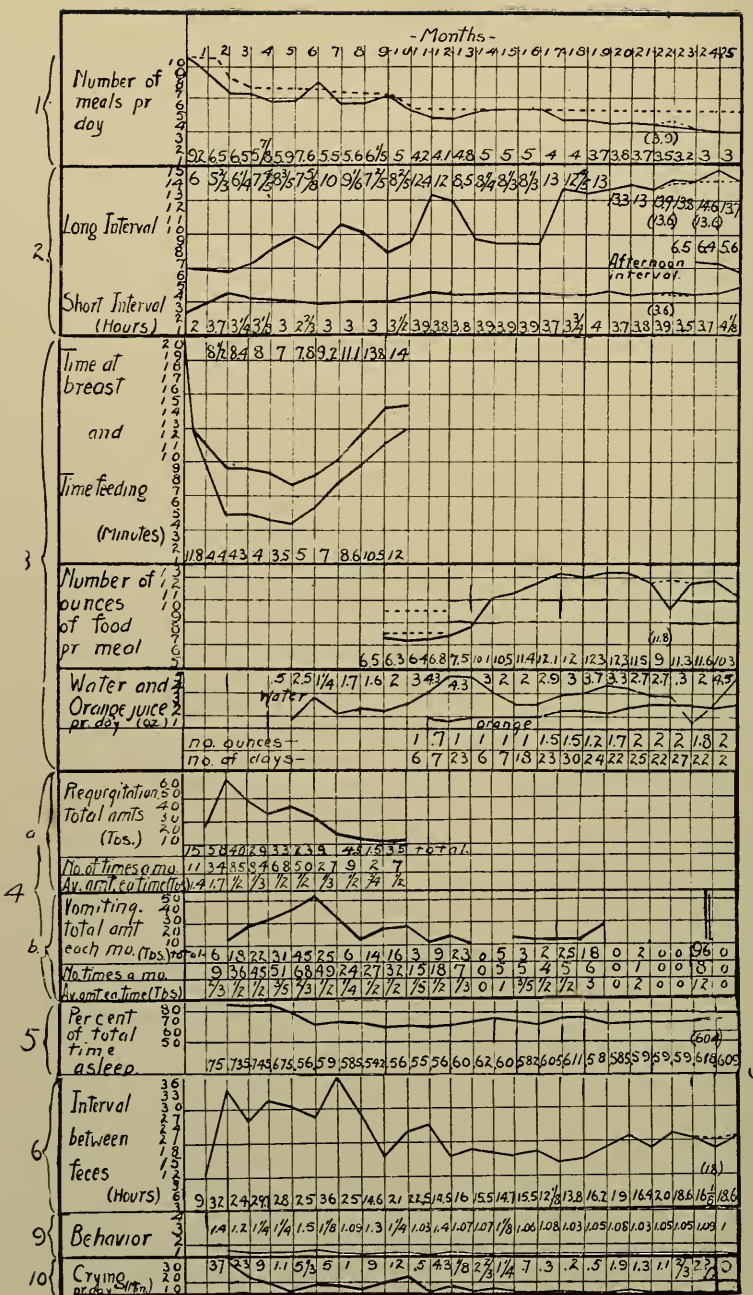 - Months -
1 2 3 4 5 6 7 8 9 10 11 12 13 14 15 16 17 18 19 20 21 22 23 24 25
1
Number of
meals pr
day
10 9 8 7 6 5 4 3 2 1
(3.9)
9.2 6.5 6.5 5 7/8 5.9 7.6 5.5 5.6 6 1/5 5 4.2 4.1 4.8 5 5 5 4 4 3.7 3.8 3.7 3.5 3.2 3 3
2.
Long Interval
15 14 13 12 11 10 9 8 7 6 5 4 3 2 1
12.4 12 8.5 8 1/4 8 1/3 8 1/3 13 12 4/5 13
13.3 13 13.9 13.8 14.6 13.7
(13.6) (13.6)
6.5 6.4 5.6
Afternoon
interval.
Short Interval
(Hours)
(3.6)
2 3.7 3 1/4 3 1/3 3 2 2/3 3 3 3 3 1/2 3.9 3.8 3.8 3.9 3.9 3.9 3.7 3 3/4 4 3.7 3.8 3.9 3.5 3.7 4 1/8
3
Time at
breast
and
Time feeding
(Minutes)
20 19 18 17 16 15 14 13 12 11 10 9 8 7 6 5 4 3 2 1
8 1/2 8.4 8 7 7.8 9.2 11.1 13.8 14
11.8 4.4 4.3 4 3.5 5 7 8.6 10.5 12
Number of
ounces
of food
pr meal
13 12 11 10 9 8 7 6 5
(11.8)
6.5 6.3 6.4 6.8 7.5 10.1 10.5 11.4 12.1 12 12.3 12.3 11.5 9 11.3 11.6 10.3
Water and
Orange juice
pr. day (oz)
.5 2.5 1 1/4 1.7 1.6 2 3 4.3 4.3 3 2 2 2.9 3 3.7 3.3 2.7 2.7 .3 2 4.5
Water
orange
no. ounces-
1 .7 1 1 1 1 1.5 1.5 1.2 1.7 2 2 2 1.8 2
no. of days-
6 7 23 6 7 18 23 30 24 22 25 22 27 22 2
4
a
Regurgitation
Total amts
(Tbs.)
60 50 40 30 20 10
15 58 40 29 33 23 9 4.5 1.5 3.5 total.
No. of times a mo
11 34 85 84 68 50 27 9 2 7
Av. amt. ea time (Tbs)
1.4 1.7 1/2 1/3 1/2 1/2 1/3 1/2 3/4 1/2
b.
Vomiting.
total amt
each mo. (Tbs.) total
50 40 30 20 10
6 18 22 31 45 25 6 14 16 3 9 2.3 0 5 3 2 2.5 18 0 2 0 0 96 0
No. times a mo.
9 36 45 51 68 49 24 27 32 15 18 7 0 5 5 4 5 6 0 1 0 0 8 0
Av. amt ea. time (Tbs)
2/3 1/2 1/2 3/5 2/3 1/2 1/4 1/2 1/2 1/5 1/2 1/3 0 1 3/5 1/2 1/2 3 0 2 0 0 12 0
5
Percent
of total
time
asleep.
80 70 60 50
(.604)
.75 .735 .745 .675 .56 .59 .585 .542 .56 .55 .56 .60 .62 .60 .582 .605 .611 .58 .585 .59 .59 .59 .618 .609
6
Interval
between
feces
(Hours)
36 33 30 27 24 21 18 15 12 9 6 3
(18)
9 32 24 29.7 28 25 36 25 14.6 21 22.5 14.5 16 15.5 14.7 15.5 12 1/8 13.8 16.2 19 16.4 20 18.6 16 1/8 18.6
9
Behavior
4 3 2 1
1.4 1.2 1 1/4 1 1/4 1.5 1 1/8 1.09 1.3 1 1/4 1.03 1.4 1.07 1.07 1 1/8 1.06 1.08 1.03 1.05 1.08 1.03 1.05 1.05 1.09 1
10
Crying
pr. day (Min.)
30 20 10
37 23 9 11 5 2/3 5 1 9 12 .5 4.3 1/8 2 2/3 1 1/4 .7 .3 .2 .5 1.9 1.3 1.1 2/3